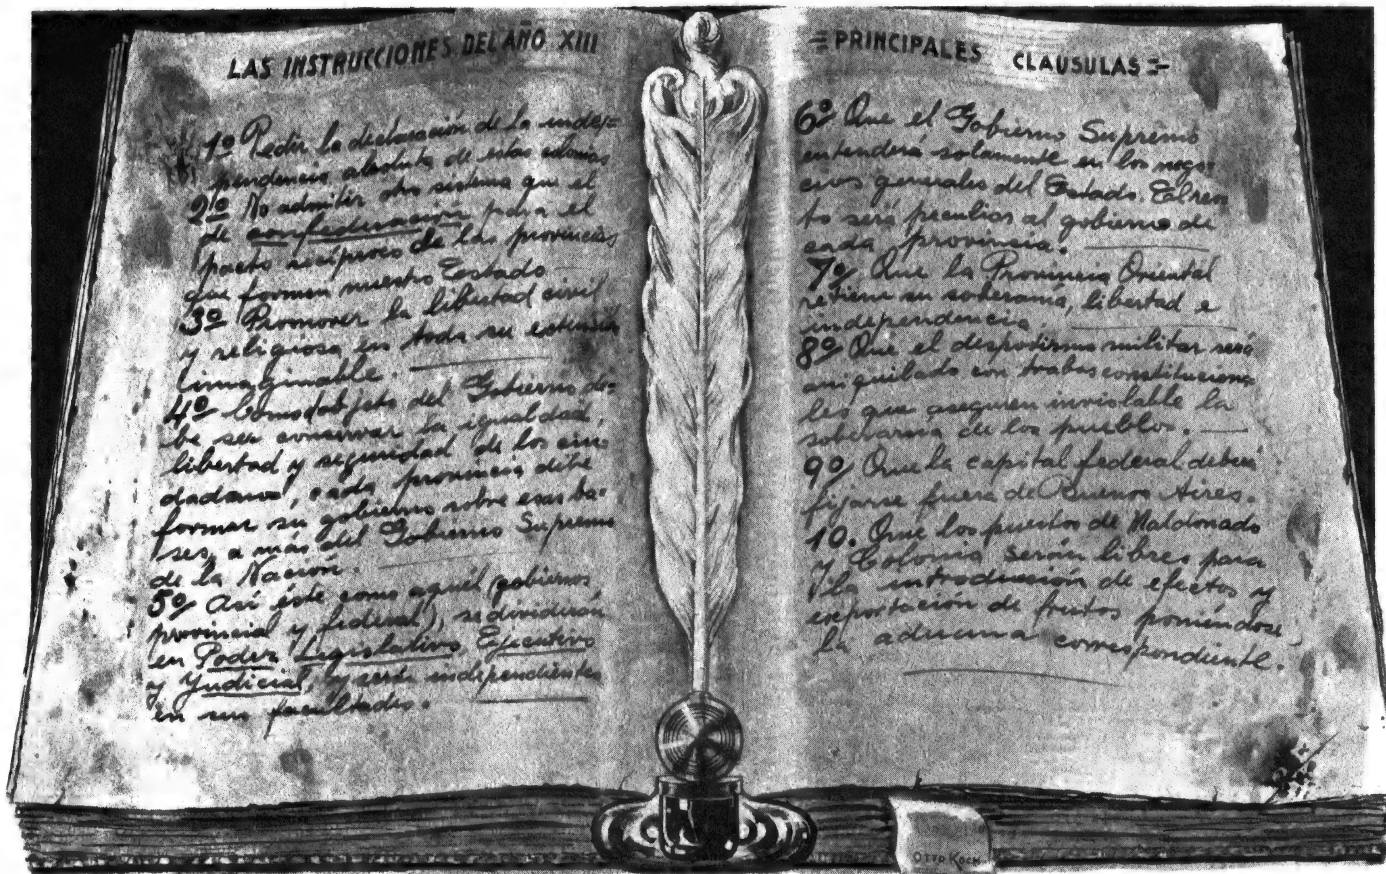 LAS INSTRUCCIONES DEL AÑO XIII
1º Pedir la declaración de la inde=
pendencia absoluta de estas colonias
2º No admitir otro sistema que el
de confederación para el
pacto recíproco de las provincias
que formen nuestro Estado
3º Promover la libertad civil
y religiosa en toda su extensión
imaginable.
4º Como objeto del Gobierno de-
be ser conservar la igualdad,
libertad y seguridad de los ciu-
dadanos, cada provincia debe
formar su gobierno sobre esas ba-
ses, a más del Gobierno Supremo
de la Nación.
5º Así éste como aquél (gobiernos
provincial y federal), se dividirán
en Poder Legislativo Ejecutivo
y Judicial, y serán independientes
en sus facultades.
=PRINCIPALES CLAUSULAS=
6º Que el Gobierno Supremo
entenderá solamente en los nego-
cios generales del Estado. El res-
to será peculiar al gobierno de
cada provincia.
7º Que la Provincia Oriental
retiene su soberanía, libertad e
independencia.
8º Que el despotismo militar será
aniquilado con trabas constituciona-
les que aseguren inviolable la
soberanía de los pueblos.
9º Que la capital federal deberá
fijarse fuera de Buenos Aires.
10. Que los puertos de Maldonado
y Colonia serán libres para
la introducción de efectos y
exportación de frutos poniéndose
la aduana correspondiente.
OTTO KOCH